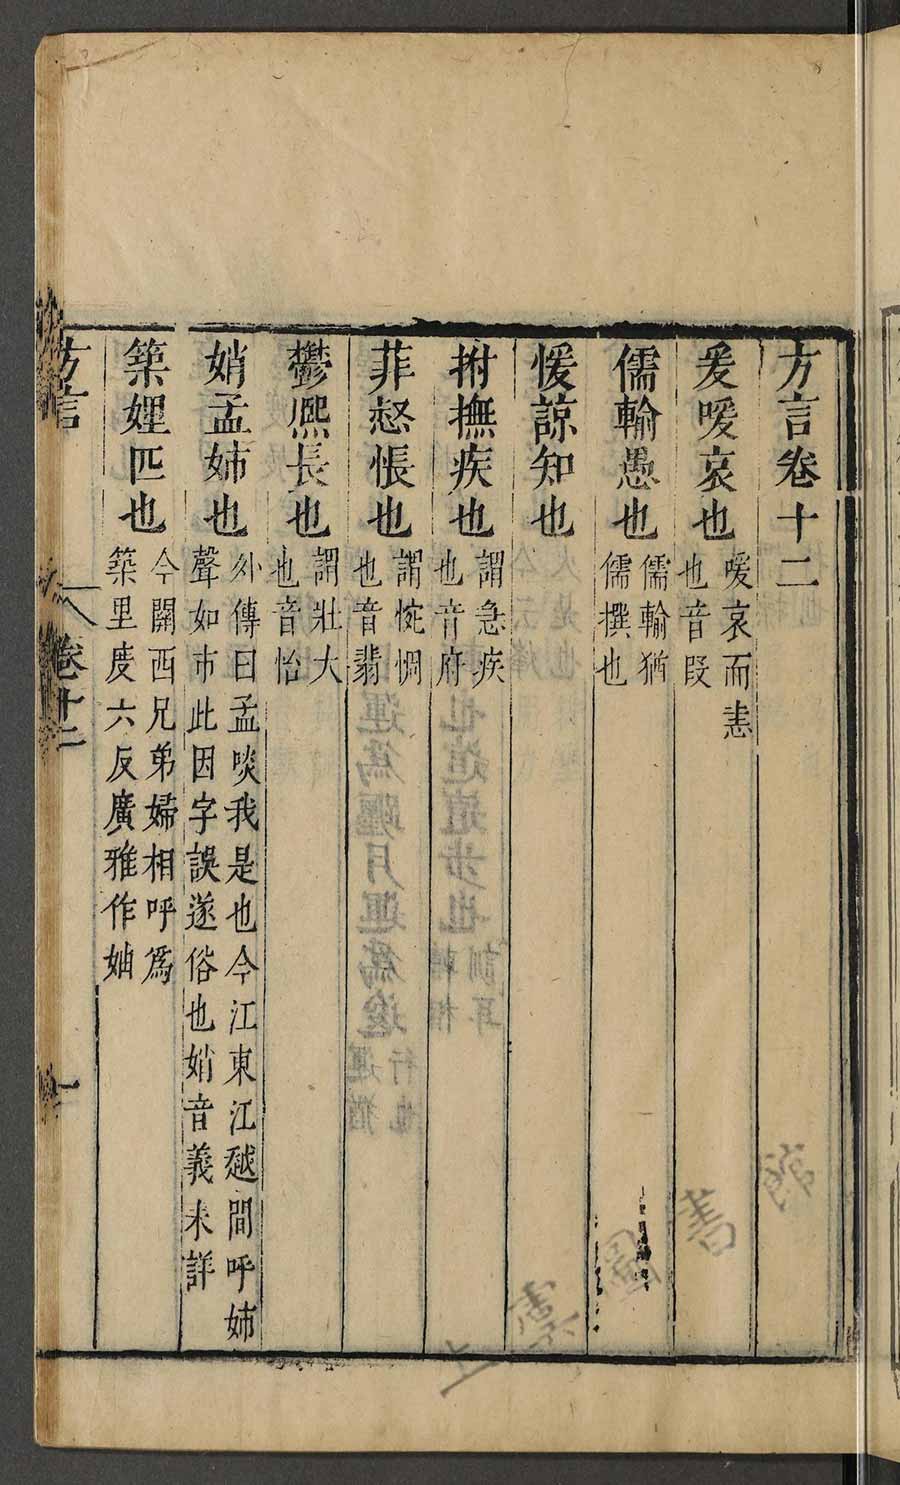 方言卷十二
爰喛哀也 喛哀而恚也音段
儒輸愚也 儒輸猶儒撰也
愋諒知也
拊撫疾也 謂急疾也音府
菲怒悵也 謂惋惆也音翡
鬱熈長也 謂壯大也音怡
娋孟姉也 外傳曰孟啖我是也今江東江越間呼姉聲如市此因字誤遂俗也娋音義未詳
築娌匹也 今關西兄弟婦相呼爲築里度六反廣雅作妯
方言 卷十二 一